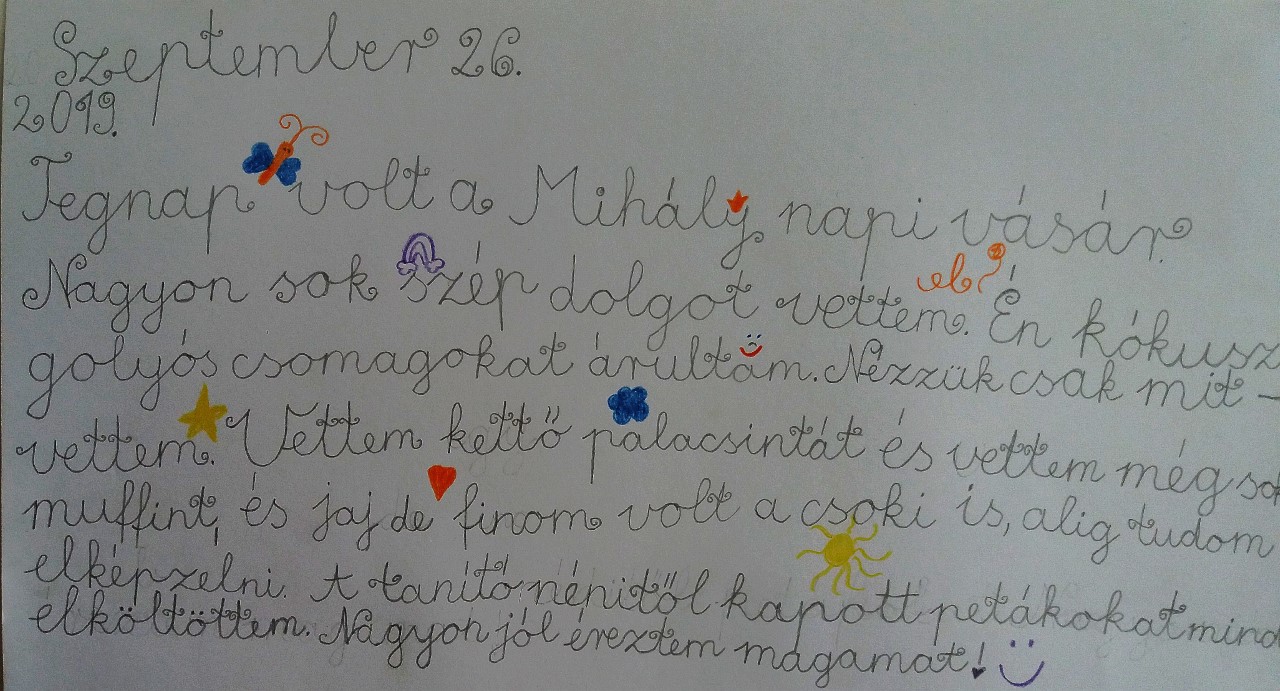 Szeptember 26.
2019.
Tegnap volt a Mihály napi vásár.
Nagyon sok szép dolgot vettem. Én kókusz
golyós csomagokat árultam. Nézzük csak mit -
vettem. Vettem kettő palacsintát és vettem még so
muffint, és jaj de finom volt a csoki is, alig tudom
elképzelni. A tanító nénitől kapott petákokat mind
elköltöttem. Nagyon jól éreztem magamat!